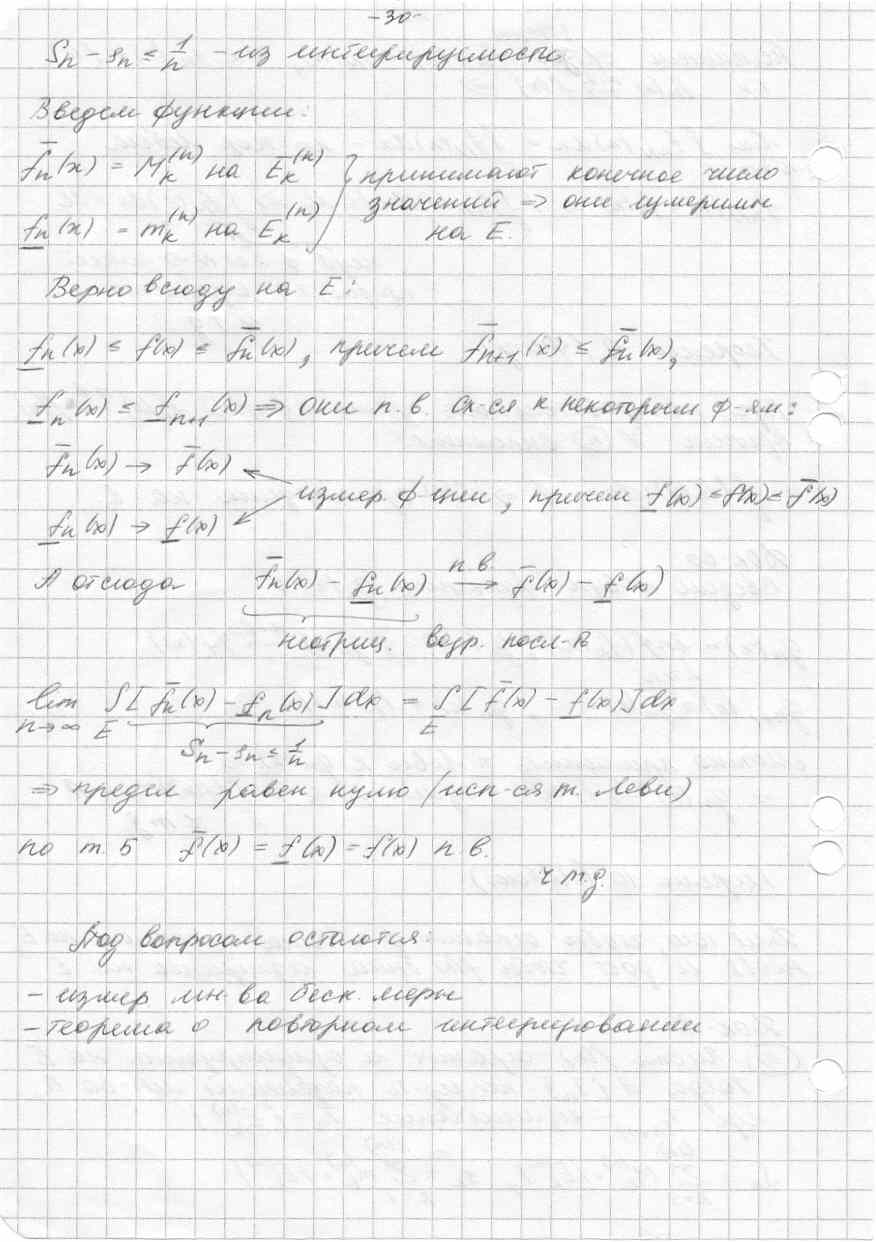 -30-
Sₙ - sₙ ≤ 1/n - из интегрируемости
Введем функции:
f̅ₙ(x) = Mₖ⁽ⁿ⁾ на Eₖ⁽ⁿ⁾ } принимают конечное число
значений ⇒ они сумеримы
f̲ₙ(x) = mₖ⁽ⁿ⁾ на Eₖ⁽ⁿ⁾ на E.
Верно всюду на E:
f̲ₙ(x) ≤ f(x) ≤ f̅ₙ(x), причем f̅ₙ₊₁(x) ≤ f̅ₙ(x),
f̲ₙ(x) ≤ f̲ₙ₊₁(x) ⇒ они п.в. сх-ся к некоторым ф-ям:
f̅ₙ(x) → f̅(x)
измер. ф-ции, причем f̲(x) ≤ f(x) ≤ f̅(x)
f̲ₙ(x) → f̲(x)
А отсюда f̅ₙ(x) - f̲ₙ(x) п.в.→ f̅(x) - f̲(x)
неотриц. возр. посл-ть
lim n→∞ ∫_E [f̅ₙ(x) - f̲ₙ(x)]dx = ∫_E [f̅(x) - f̲(x)]dx
Sₙ - sₙ ≤ 1/n
⇒ предел равен нулю (исп-ся т. Леви)
по т. 5 f̅(x) = f̲(x) = f(x) п.в.
ч.т.д.
Под вопросом остаются:
- измер мн-ва беск. меры
- теорема о повторном интегрировании